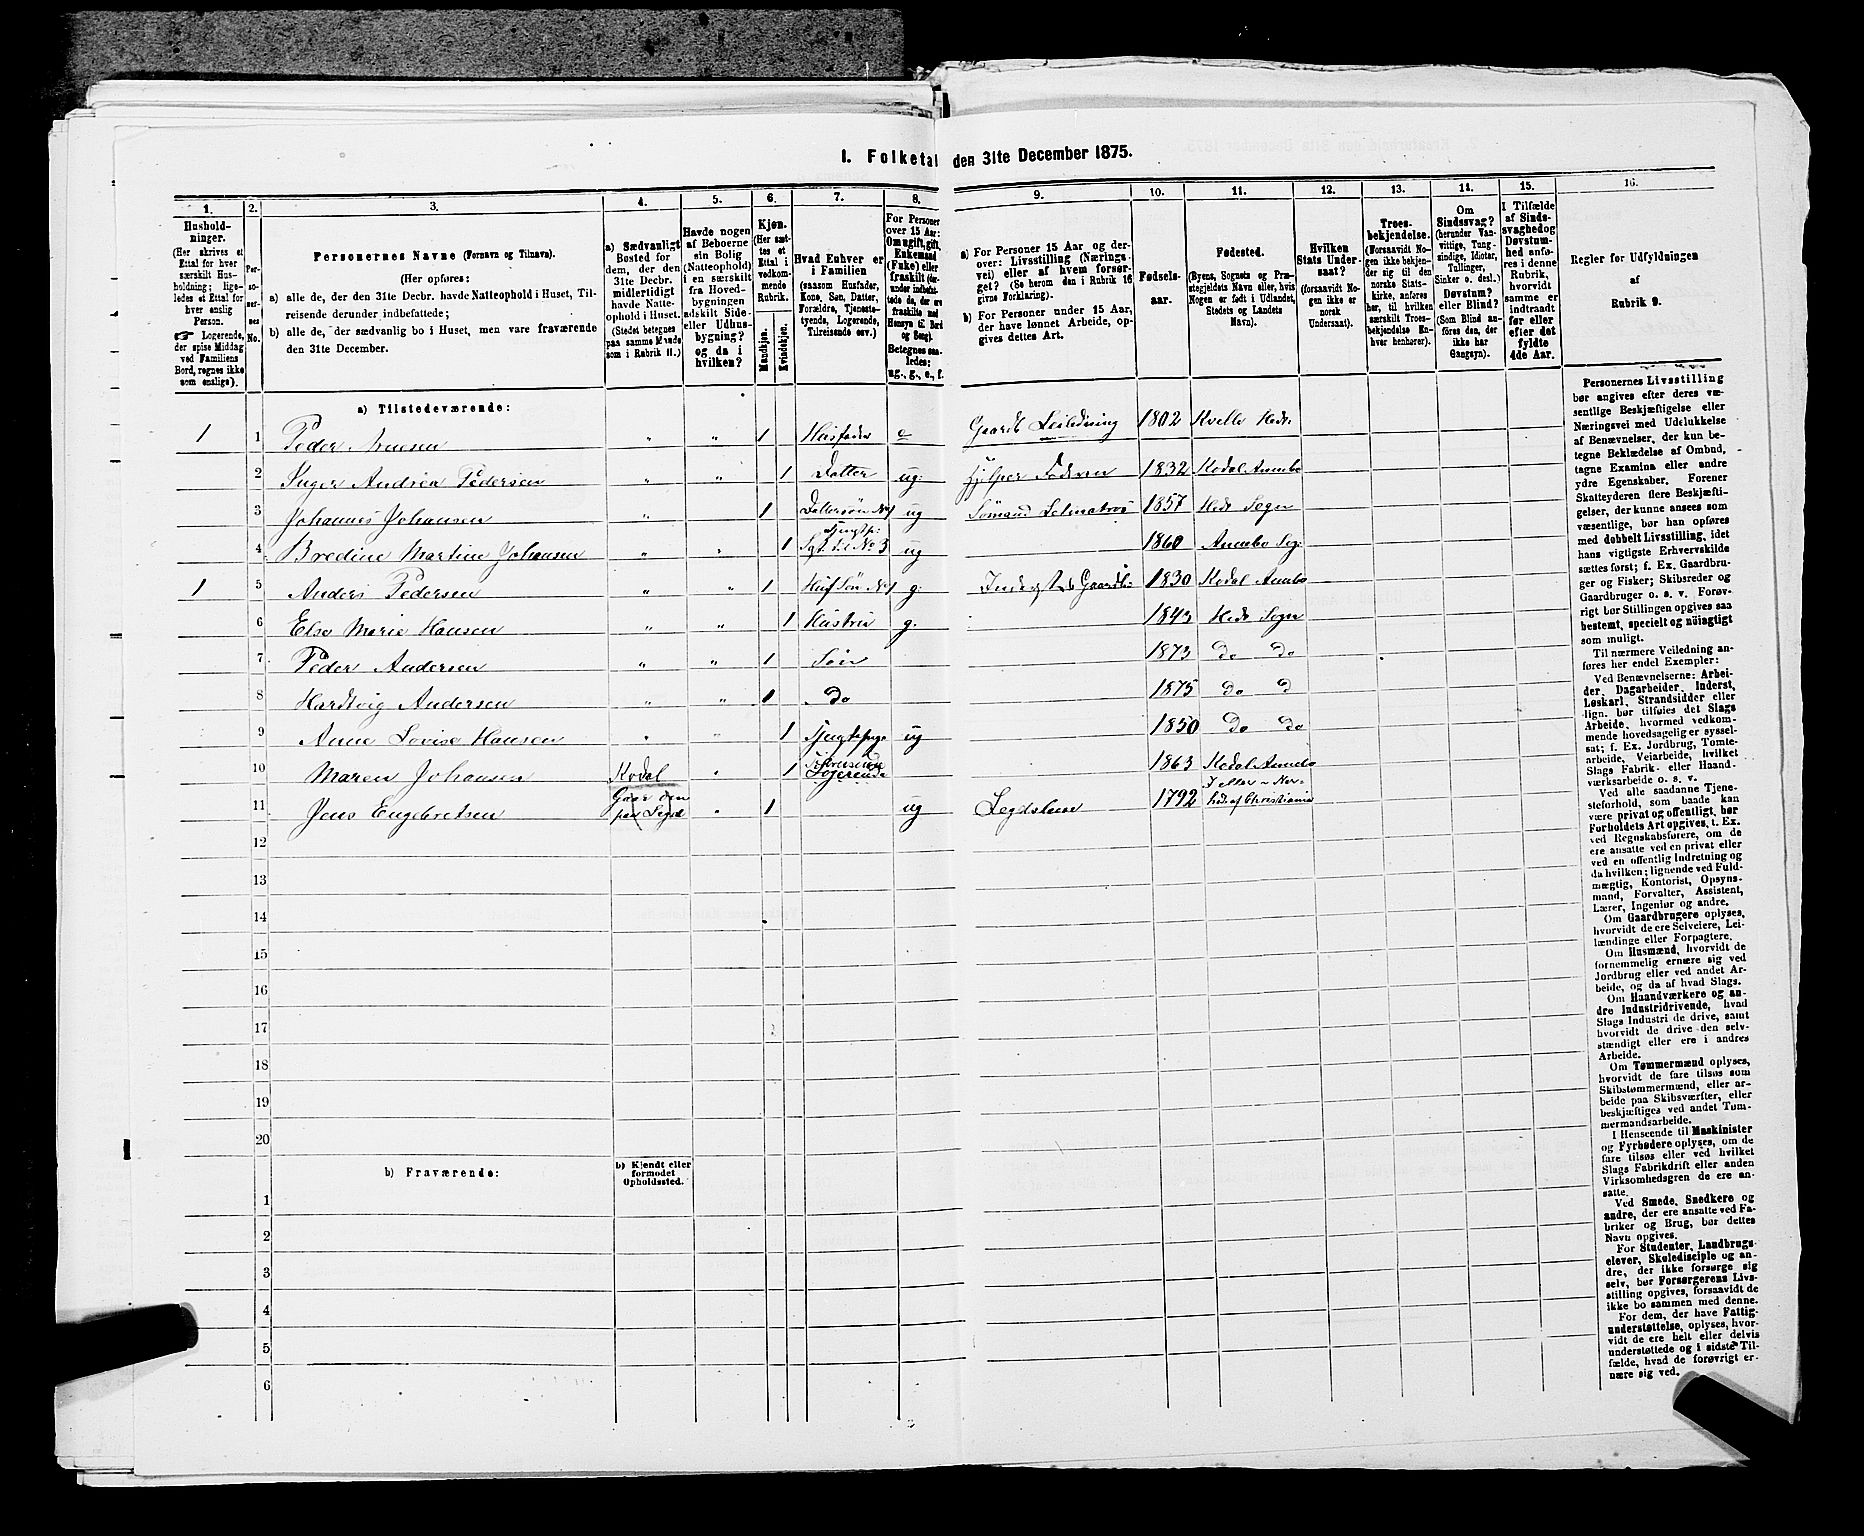 I. Folketal den 31te December 1875.
1. 2. 3. 4. 5. 6. 7. 8. 9. 10. 11. 12. 13. 14. 15. 16.
Hushold-
ninger.
(Her skrives et
Ettal for hver
særskilt Hus-
holdning; lige-
ledes et Ettal for
hver enslig
Person.
☞ Logerende,
der spise Middag
ved Familiens
Bord, regnes ikke
som enslige).
Per-
so-
ner-
nes
No.
Personernes Navne (Fornavn og Tilnavn).
(Her opføres:
a) alle de, der den 31te Decbr. havde Natteophold i Huset, Til-
reisende derunder indbefattede;
b) alle de, der sædvanlig bo i Huset, men vare fraværende
den 31te December.
a) Sædvanligt
Bosted for
dem, der den
31te Decbr.
midlertidigt
havde Natte-
ophold i Huset.
(Stedet betegnes
paa samme Maade
som i Rubrik 11.)
Havde nogen
af Beboerne
sin Bolig
(Natteophold)
i en særskilt
fra Hoved-
bygningen
adskilt Side-
eller Udhus-
bygning?
og da i
hvilken?
Kjøn.
(Her sæt-
tes et
Ettal i
vedkom-
mende
Rubrik.
Mandkjøn.
Kvindekjøn.
Hvad Enhver er
i Familien
(saasom Husfader,
Kone, Søn, Datter,
Forældre, Tjeneste-
tyende, Logerende,
Tilreisende osv.)
For Personer
over 15 Aar:
Om ugift, gift,
Enkemand
(Enke) eller
fraskilt
Hensyn til Bord
og Seng).
Betegnes saa-
ledes:
ug., g., e., f.
a) For Personer 15 Aar og der-
over: Livsstilling (Nærings-
vei) eller af hvem forsør-
get? (Se herom den i Rubrik 16
givne Forklaring).
b) For Personer under 15 Aar,
der have lønnet Arbeide, op-
gives dettes Art.
Fødsels-
aar.
Fødested.
(Byens, Sognets og Præ-
stegjeldets Navn eller, hvis
Nogen er født i Udlandet,
Stedets og Landets
Navn).
Hvilken
Stats Under-
saat?
(forsaavidt No-
gen ikke er
norsk
Undersaat).
Troes-
bekjendelse.
(Forsaavidt No-
gen ikke bekjen-
der sig til den
norske Stats-
kirke, anføres
her, til hvilken
særskilt Troes-
bekjendelse En-
hver henhører).
Om
Sindssvag?
(herunder Van-
vittige, Tung-
sindige, Idioter,
Tullinger,
Sinker o. desl.)
Døvstum?
eller Blind?
(Som Blind an-
føres den, der
ikke har
Gangsyn).
I Tilfælde
af Sinds-
svaghed og
Døvstum-
hed anfø-
res i denne
Rubrik,
hvorvidt
samme er
indtraadt
før eller
efter det
fyldte
4de Aar.
Regler for Udfyldningen
af
Rubrik 9.
a) Tilstedeværende:
1 1 Peder Anesen " " 1 Husfader e Gaardb Leilending 1802 Kvelle Hedr.
2 Inger Andrea Pedersen " " 1 Datter ug. Hjelper Faderen 1832 Kodal Annebo
3 Johannes Johansen " 1 Dattersøn No 1 ug Sømand 1857 Hedr Sogn
4 Bredine Martine Johansen " " 1 ug 1860 Annebo Sog.
1 5 Anders Pedersen " " 1 Husf Søn No 1 g. 1830 Kodal Annebo
6 Else Marie Hansen " " 1 Hustru g. 1843 Hedr Sogn
7 Peder Andersen " " 1 Søn 1873 Do Do
8 Hardtvig Andersen " " 1 Do 1875 Do D
9 Anne Lovise Hansen " " 1 Tjenstepige ug 1850 Do Do
10 Maren Johansen Kodal " 1 Tilreisende Logerende 1863 Kodal Annebo
11 Jens Engebretsen Gaar den paa Legd " 1 ug Legdslem 1792 hed: af Christiania
12
13
14
15
16
17
18
19
20
b) Fraværende:
b) Kjendt eller
formodet
Opholdssted.
1
2
3
4
5
6
Personernes Livsstilling
bør angives efter deres væ-
sentlige Beskjæftigelse eller
Næringsvei med Udelukkelse
af Benævnelser, der kun be-
tegne Beklædelse af Ombud,
tagne Examina eller andre
ydre Egenskaber. Forener
Skatteyderen flere Beskjæfti-
gelser, der kunne ansees som
væsentlige, bør han opføres
med dobbelt Livsstilling, idet
hans vigtigste Erhvervskilde
sættes først; f. Ex. Gaardbru-
ger og Fisker; Skibsreder og
Gaardbruger o. s. v. Forøv-
rigt bør Stillingen opgives saa
bestemt, specielt og nøiagtigt
som muligt.
Til nærmere Veiledning an-
føres her endel Exempler:
Ved Benævnelserne: Arbei-
der, Dagarbeider, Inderst,
Løskarl, Strandsidder eller
lign. bør tilføies det Slags
Arbeide, hvormed vedkom-
mende hovedsagelig er syssel-
sat; f. Ex. Jordbrug, Tomte-
arbeide, Veiarbeide, hvilket
Slags Fabrik- eller Haand-
værksarbeide o. s. v.
Ved alle saadanne Tjene-
steforhold, som baade kan
være privat og offentligt, bør
Forholdets Art opgives, t. Ex.
ved Regnskabsførere, om de
ere ansatte ved en privat eller
ved en offentlig Indretning og
da hvilken; lignende ved Fuld-
mægtig, Kontorist, Opsyns-
mand, Forvalter, Assistent,
Lærer, Ingeniør og andre.
Om Gaardbrugere oplyses,
hvorvidt de ere Selveiere, Lei-
lændinge eller Forpagtere.
Om Husmænd, hvorvidt de
fornemmelig ernære sig ved
Jordbrug eller ved andet Ar-
beide, og da af hvad Slags.
Om Haandværkere og an-
dre Industridrivende, hvad
Slags Industri de drive, samt
hvorvidt de drive den selv-
stændigt eller ere i andres
Arbeide.
Om Tømmermænd oplyses,
hvorvidt de fare tilsøs som
Skibstømmermænd, eller ar-
beide paa Skibsværfter, eller
beskjæftiges ved andet Tøm-
mermandsarbeide.
I Henseende til Maskinister
og Fyrbødere oplyses, om de
fare tilsøs eller ved hvilket
Slags Fabrikdrift eller anden
Virksomhedsgren de ere an-
satte.
Ved Smede, Snedkere og
andre, der ere ansatte ved Fa-
briker og Brug, bør dettes
Navn opgives.
For Studenter, Landbrugs-
elever, Skoledisciple og an-
dre, der ikke forsørge sig
selv, bør Forsørgerens Livs-
stilling opgives, forsaavidt de
ikke bo sammen med denne.
For dem, der have Fattig-
understøttelse, oplyses, hvor-
vidt de ere helt eller delvis
understøttede og i sidste Til-
fælde, hvad de forøvrigt er-
nære sig ved.